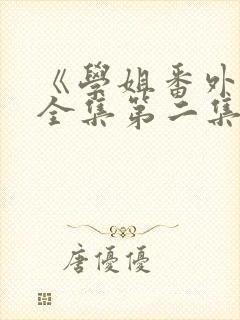 《學姐番外
全集第二集
唐優優